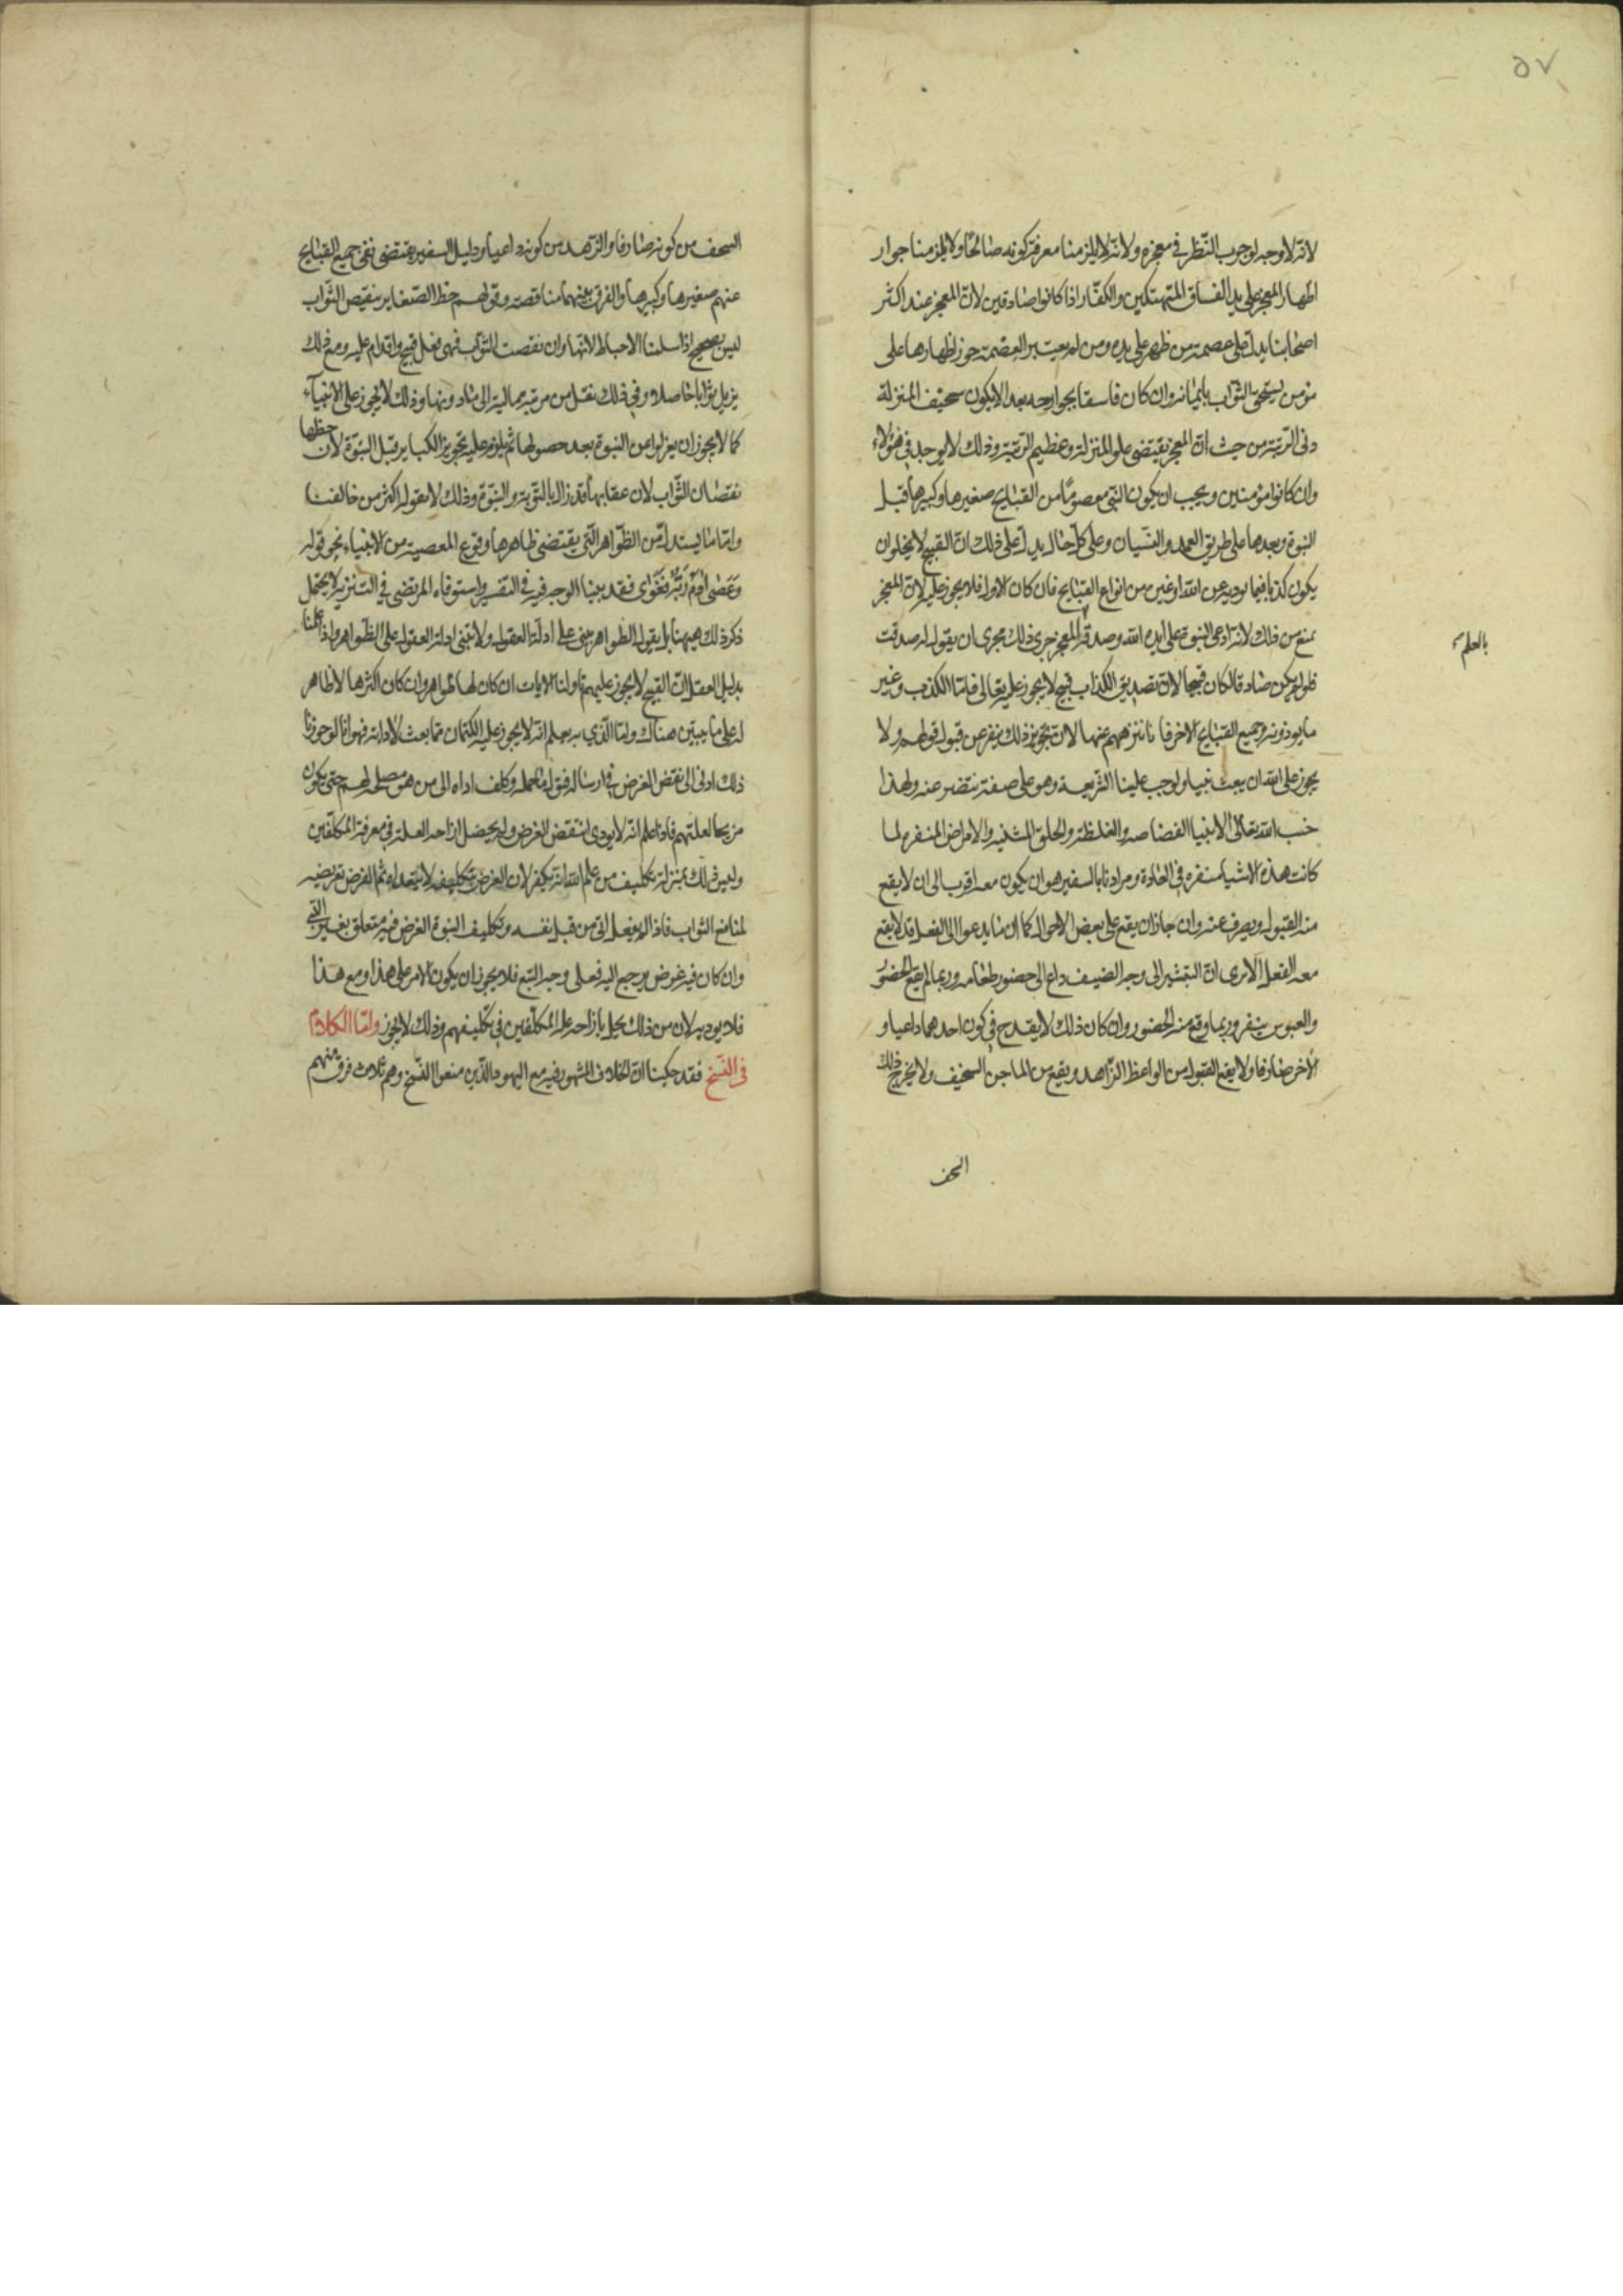 ٥٧
لانه لا وجه لوجوب النّظر في معجزه ولانه لا يلزمنا معرفة كونه صالحًا ولا يلزمنا جواز
اظهار المعجز على يد الفساق المتهتكين والكفّار اذا كانوا صادقين لانّ المعجز عند اكثر
اصحابنا يدلّ على عصمة من ظهر على يده ومن لم يعتبر العصمة جوز اظهارها على
مؤمن يستحق الثواب بايمانه وان كان فاسقا بجوارحه بعد الا يكون سخيف المنزلة
دنى الرتبة من حيث انّ المعجز يقتضى علو المنزلة وعظيم الرتبة وذلك لا يوجد في هؤلاء
وان كانوا مؤمنين ويجب ان يكون النبي معصومًا من القبايح صغيرها وكبيرها قبل
النبوة وبعدها على طريق العمد والنسيان وعلى كلّ حال يدلّ على ذلك انّ القبيح لا يخلو ان
يكون كذبا فيما يوديه عن الله او غيره من انواع القبايح فان كان الاول فلا يجوز عليه لانّ المعجز
يمنع من ذلك لانه ادعى النبوة على الله وصدقه المعجز جرى ذلك مجرى ان يقول له صدقت
بالعلم
فلو لم يكن صادقا لكان قبيحا لانّ تصديق الكذاب قبيح لا يجوز عليه تعالى فامّا الكذب وغير
ما يودونه وجميع القبايح الاخر فانا ننزههم عنها لانّ تجويز ذلك ينفر عن قبول قولهم ولا
يجوز على الله ان يبعث نبيا ويوجب علينا الشريعة وهو على صفة تنفر عنه ولهذا
جنب الله تعالى الانبيا الفضاضه والغلظة والخلق المشنيه والامراض المنفره لما
كانت هذه الاشيا منفره في العادة ومرادنا بالتنفير هو ان يكون معه اقرب الى ان لا يقع
منه القبول ويصرف عنه وان جاز ان يقع على بعض الاحوال كما ان ما يدعوا الى الفعل قد لا يقع
معه الفعل الا ترى انّ التبشير الى وجه الضيف داع الى حضور طعامه وربما لم يقع الحضور
والعبوس ينفر وربما وقع منه الحضور وان كان ذلك لا يقدح في كون احدهما داعيا و
الاخر صارفا ولا يقع القبول من الواعظ الزّاهد ويقع من الماجن السخيف ولا يخرج ذلك
السخف
السخف من كونه صارفا والزهد من كونه داعيا ودليل التنفير يقتضى نفى جميع القبايح
عنهم صغيرها وكبيرها والفرق بينهما مناقصة وقولهم حظ الصّغاير تنقيص الثّواب
ليس بصحيح اذا سلمنا الاحباط لانها وان نقصت الثواب فهى فعل قبيح واقدام عليه ومع ذلك
يزيل ثوابا حاصلا وفي ذلك نقل من مرتبة عالية الى ما دونها وذلك لا يجوز على الانبيآء
كما لا يجوز ان يعزلوا عن النبوة بعد حصولها ثم يلزم عليه تجويز الكباير قبل النبوة لان حظها
نقصان الثّواب لان عقابها قد زال بالتوبة والنبوة وذلك لا يقوله اكثر من خالفنا
وامّا ما يستدل من الظّواهر الّتي يقتضى ظاهرها وقوع المعصية من الانبياء نحو قوله
وَعَصٰى اٰدَمُ رَبَّهُ فَغَوٰى فقد بينا الوجه فيه في التفسير واستوفاه المرتضى في التنزيه لا يحتمل
ذكر ذلك ههنا بل يقول الظواهر يبنى على ادلّة العقول ولا يبنى ادلة العقول على الظّواهر واذا علمنا
بدليل العقل انّ القبيح لا يجوز عليهم تاولنا الايات ان كان لها ظواهر وان كان اكثرها لا ظاهر
له على ما يبين هناك وامّا الّذي به يعلم انه لا يجوز عليه الكتمان مما بعث لادائه فهو انا لو جوزنا
ذلك ادى الى نقض الغرض في ارساله وكلف اداه الى من هو مصلحة لهم حتى يكون
مزيحا لعلتهم فاذا علم انه لا يودى انتقض الغرض ولم يحصل ازاحة العلة في معرفة المكلّفين
وليس ذلك بمنزلة تكليف من علم الله انه يكفر لان الغرض بتكليفه لا يتعداه ثم الغرض تعريضه
لمنافع الثواب فاذا لم يفعل اتى من قبل نفسه وتكليف النبوة الغرض فيه متعلق بغير النّبي
وان كان فيه غرض يرجع اليه فعلى وجه التبع فلا يجوز ان يكون الامر على هذا ومع هذا
فلا يوديه لان من ذلك يخل بازاحة علة المكلّفين في تكليفهم وذلك لا يجوز وامّا الكلام
في النّسخ فقد حكينا انّ الخلاف المشهور فيه مع اليهود الّذين منعوا النّسخ وهم ثلاث فرق منهم